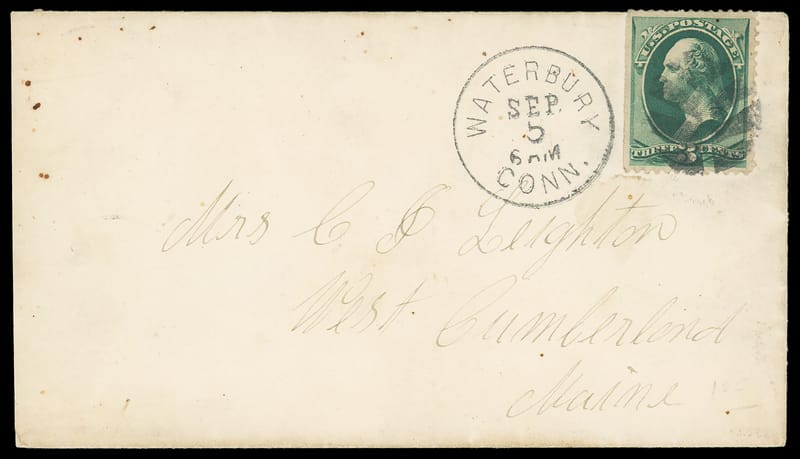 U.S. POSTAGE
THREE 3 CENTS
WATERBURY
SEP.
5
6 AM
CONN.
Mrs C F Leighton
West Cumberland
Maine